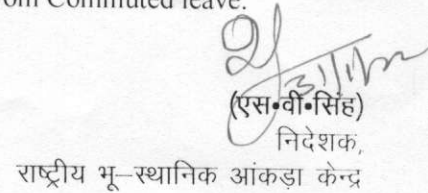 om Commuted leave.
(एस॰वी॰सिंह)
निदेशक,
राष्ट्रीय भू–स्थानिक आंकडा केन्द्र